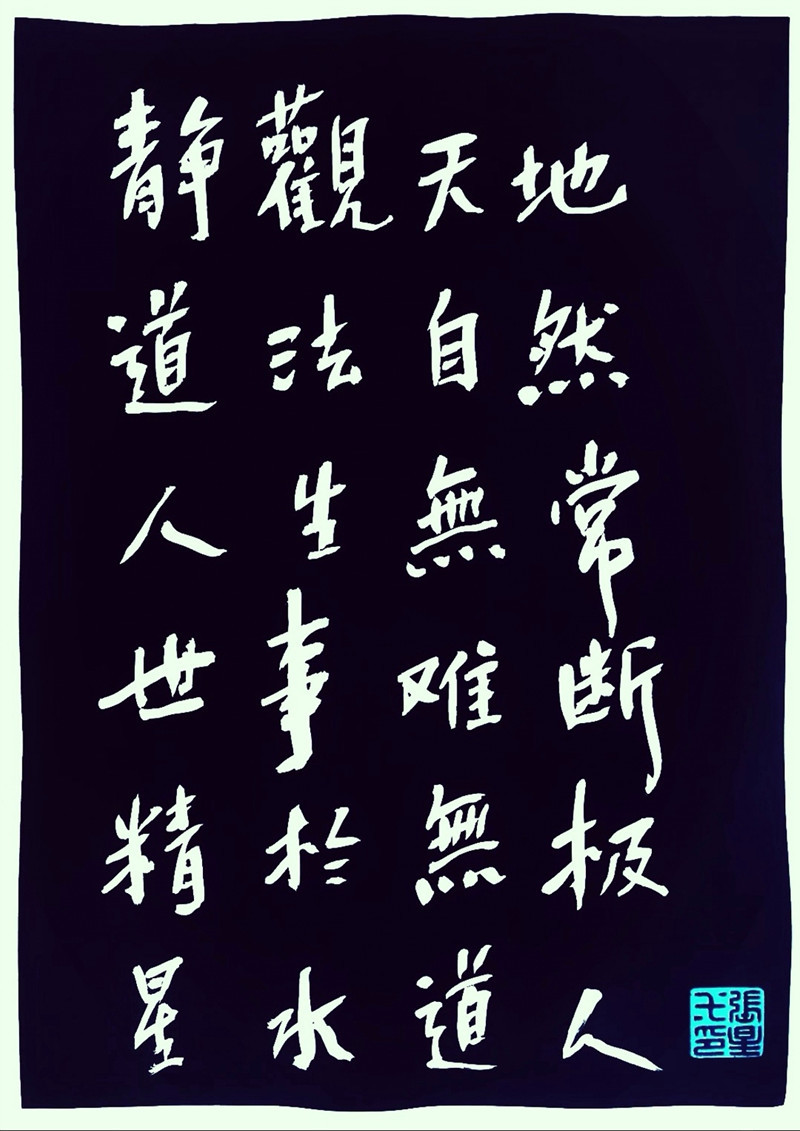 静觀天地
道法自然
人生無常
世事难断
精於無极
星水道人
張星